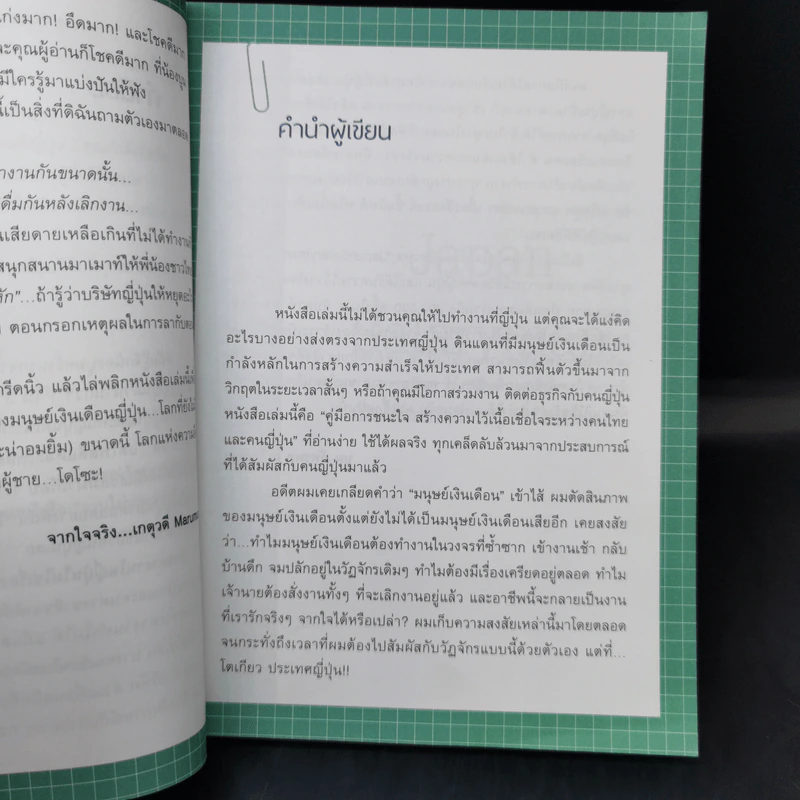 ก่งมาก! อึดมาก! และโชคดีมาก
ะคุณผู้อ่านก็โชคดีมาก ที่น้อง
มีใครรู้มาแบ่งปันให้ฟัง
ี้เป็นสิ่งที่ดิฉันถามตัวเองมาตลอด
ำงานกันขนาดนั้น...
ดื่มกันหลังเลิกงาน...
นเสียดายเหลือเกินที่ไม่ได้ทำงาน
สนุกสนานมาเมาท์ให้พี่น้องชาวไทย
ัก”...ถ้ารู้ว่าบริษัทญี่ปุ่นให้หยุด
ตอนกรอกเหตุผลในการลากับ
กรีดนิ้ว แล้วไล่พลิกหนังสือเล่มนี้
งมนุษย์เงินเดือนญี่ปุ่น...โลกที่
ะน่าอมยิ้ม) ขณะนี้ โลกแห่งความ
ผู้ชาย...โดโซะ!
จากใจจริง...เกตุวดี Marum
คำนำผู้เขียน
หนังสือเล่มนี้ไม่ได้ชวนคุณให้ไปทำงานที่ญี่ปุ่น แต่คุณจะได้แง่คิด
อะไรบางอย่างส่งตรงจากประเทศญี่ปุ่น ดินแดนที่มีมนุษย์เงินเดือนเป็น
กำลังหลักในการสร้างความสำเร็จให้ประเทศ สามารถฟื้นตัวขึ้นมาจาก
วิกฤตในระยะเวลาสั้นๆ หรือถ้าคุณมีโอกาสร่วมงาน ติดต่อธุรกิจกับคนญี่ปุ่น
หนังสือเล่มนี้คือ “คู่มือการชนะใจ สร้างความไว้เนื้อเชื่อใจระหว่างคนไทย
และคนญี่ปุ่น” ที่อ่านง่าย ใช้ได้ผลจริง ทุกเคล็ดลับล้วนมาจากประสบการณ์
ที่ได้สัมผัสกับคนญี่ปุ่นมาแล้ว
อดีตผมเคยเกลียดคำว่า “มนุษย์เงินเดือน” เข้าไส้ ผมตัดสินภาพ
ของมนุษย์เงินเดือนตั้งแต่ยังไม่ได้เป็นมนุษย์เงินเดือนเสียอีก เคยสงสัย
ว่า...ทำไมมนุษย์เงินเดือนต้องทำงานในวงจรที่ซ้ำซาก เข้างานเช้า กลับ
บ้านดึก จมปลักอยู่ในวัฏจักรเดิมๆ ทำไมต้องมีเรื่องเครียดอยู่ตลอด ทำไม
เจ้านายต้องสั่งงานทั้งๆ ที่จะเลิกงานอยู่แล้ว และอาชีพนี้จะกลายเป็นงาน
ที่เรารักจริงๆ จากใจได้หรือเปล่า? ผมเก็บความสงสัยเหล่านี้มาโดยตลอด
จนกระทั่งถึงเวลาที่ผมต้องไปสัมผัสกับวัฏจักรแบบนี้ด้วยตัวเอง แต่ที่...
โตเกียว ประเทศญี่ปุ่น!!